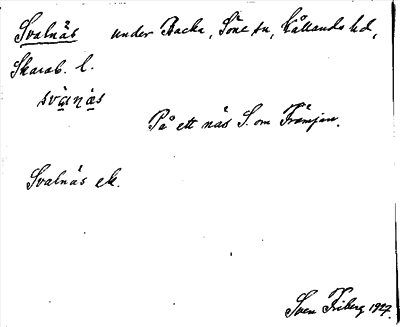 Svalnäs under Backa, Söne sn, Kållands hd,
Skarab. l.
svànàs
På ett näs S. om Främjan.
Svalnäs ek.
Sven Friberg 1927.